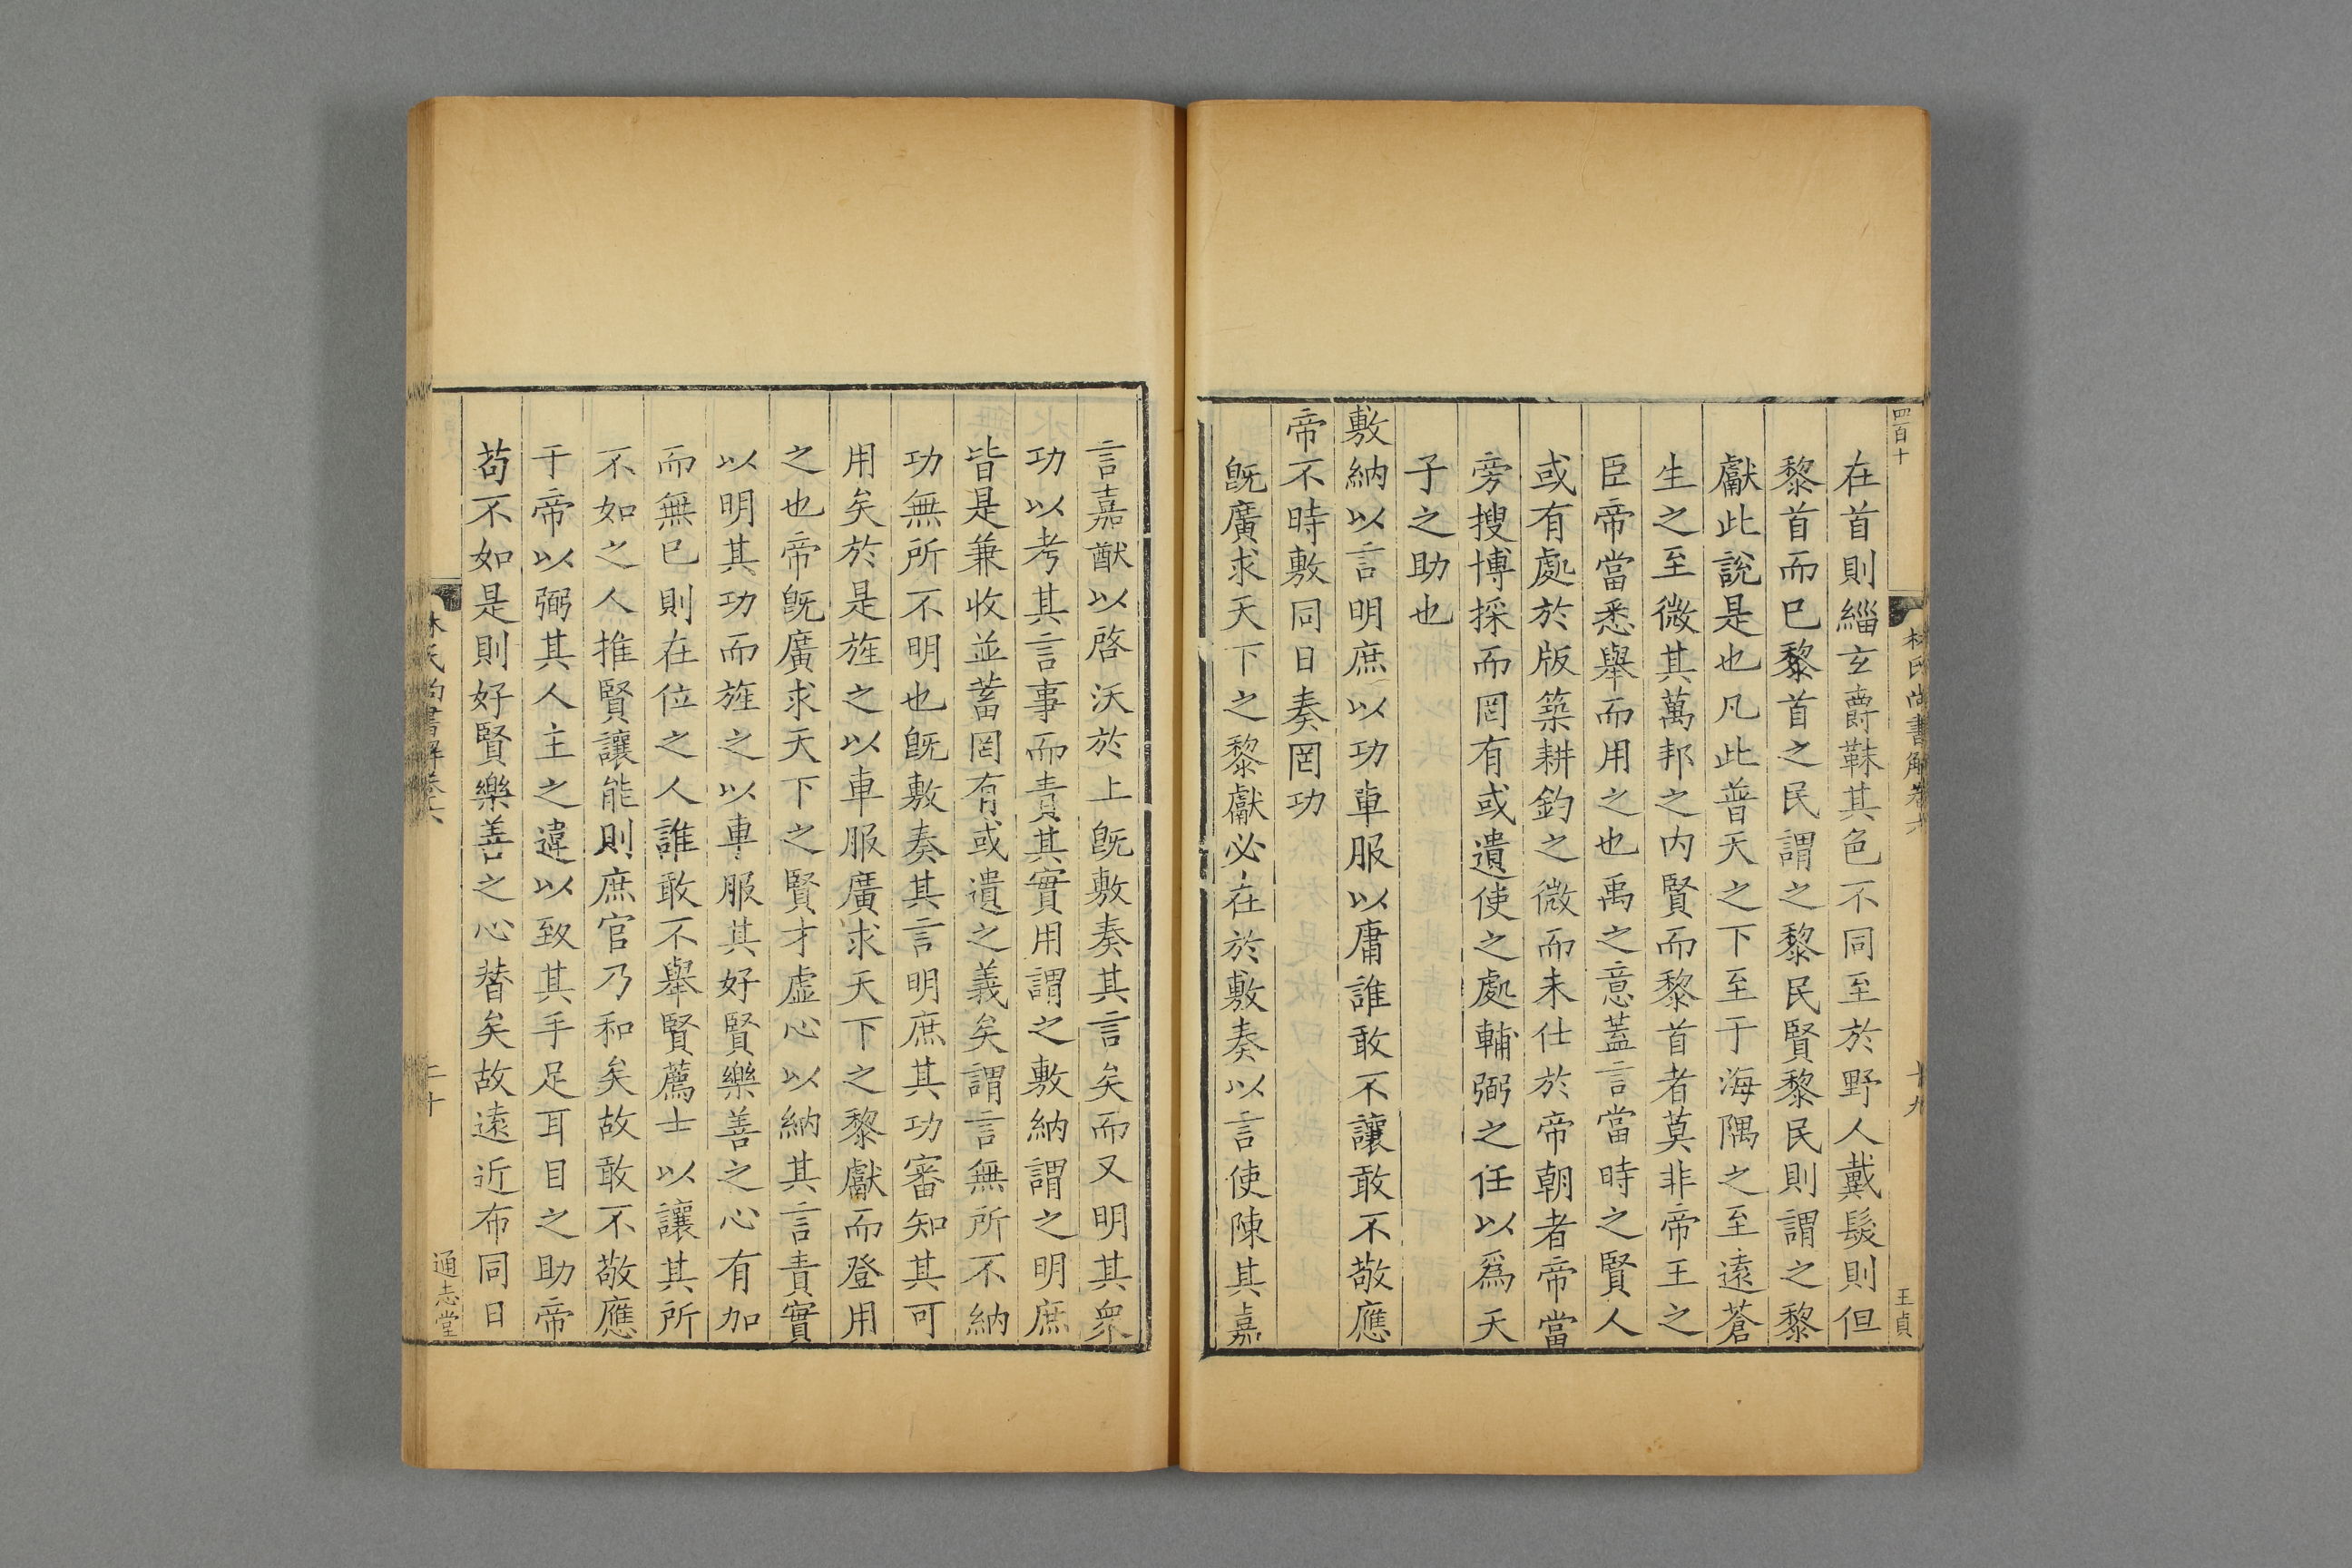 四百十
林氏尚書解卷六
十九
王貞
在首則緇玄爵韎其色不同至於野人戴髮則但
黎首而已黎首之民謂之黎民賢黎民則謂之黎
獻此說是也凡此普天之下至于海隅之至遠蒼
生之至微其萬邦之内賢而黎首者莫非帝王之
臣帝當悉舉而用之也禹之意蓋言當時之賢人
或有處於版築耕釣之微而未仕於帝朝者帝當
旁搜博採而罔有或遺使之處輔弼之任以爲天
子之助也
敷納以言明庶以功車服以庸誰敢不讓敢不敬應
帝不時敷同日奏罔功
旣廣求天下之黎獻必在於敷奏以言使陳其嘉
言嘉猷以啓沃於上旣敷奏其言矣而又明其衆
功以考其言事而責其實用謂之敷納謂之明庶
皆是兼收並蓄罔有或遺之義矣謂言無所不納
功無所不明也旣敷奏其言明庶其功審知其可
用矣於是旌之以車服廣求天下之黎獻而登用
之也帝旣廣求天下之賢才虛心以納其言責實
以明其功而旌之以車服其好賢樂善之心有加
而無已則在位之人誰敢不舉賢薦士以讓其所
不如之人推賢讓能則庶官乃和矣故敢不敬應
于帝以弼其人主之違以致其手足耳目之助帝
苟不如是則好賢樂善之心替矣故遠近布同日
林氏尚書解卷六
二十
通志堂